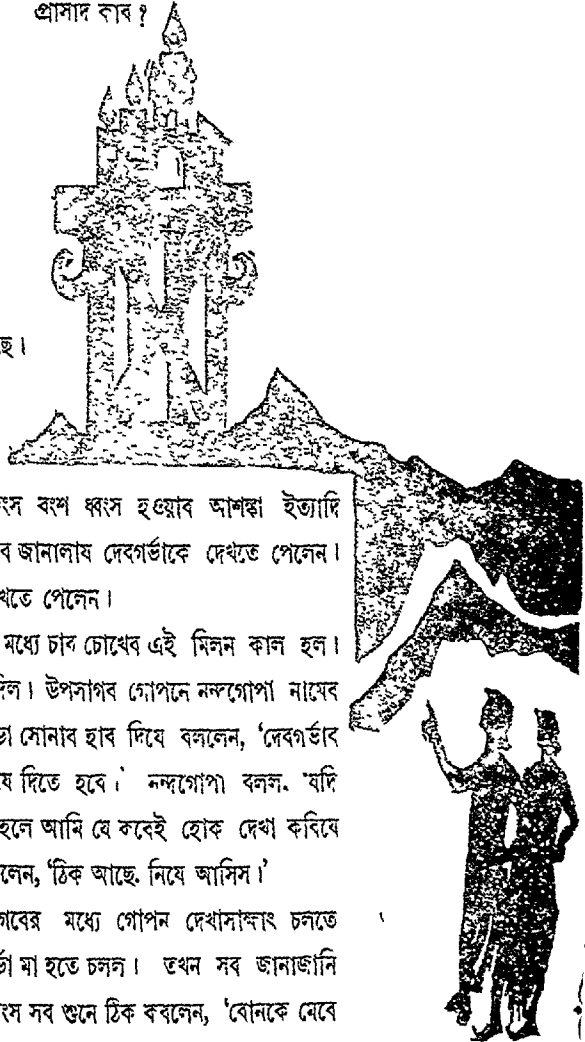 প্রাসাদ কার?
ছে।
ংস বংশ ধ্বংস হওয়ার আশঙ্কা ইত্যাদি
র জানালায দেবগর্ভাকে দেখতে পেলেন।
খতে পেলেন।
মধ্যে চার চোখের এই মিলন কাল হল।
দিল। উপসাগর গোপনে নন্দগোপা নামের
ড়া সোনার হার দিযে বললেন, ‘দেবগর্ভার
যে দিতে হবে।’ নন্দগোপা বলল. ‘যদি
হলে আমি যে করেই হোক দেখা করিযে
লেন, ‘ঠিক আছে. নিযে আসিস।’
গরের মধ্যে গোপন দেখাসাক্ষাৎ চলতে
র্ভা মা হতে চলল। তখন সব জানাজানি
ংস সব শুনে ঠিক করলেন, ‘বোনকে মেরে